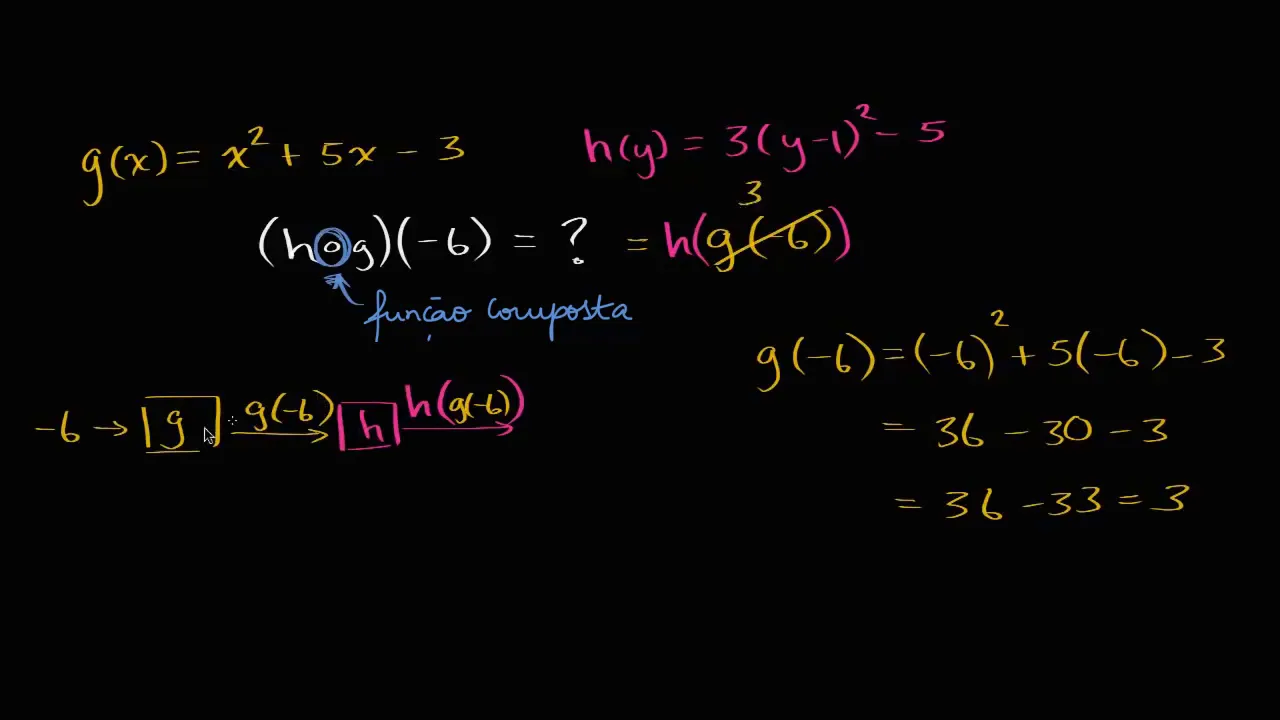 g(x) = x² + 5x - 3
h(y) = 3(y-1)² - 5
3
(h∘g)(-6) = ? = h(g(-6))
função composta
g(-6) = (-6)² + 5(-6) - 3
= 36 - 30 - 3
= 36 - 33 = 3
-6 → g g(-6) h h(g(-6))